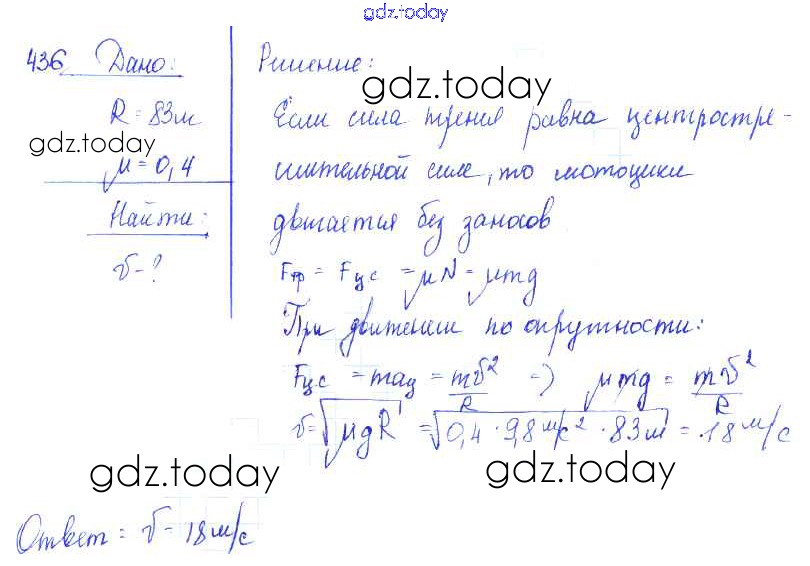 gdz.today
436 Дано:
R = 83м
gdz.today
μ = 0,4
Найти:
v - ?
Решение:
gdz.today
Если сила трения равна центростре-
мительной силе, то мотоцикл
двигается без заносов
Fтр = Fцс = μN = μmg
При движении по окружности:
Fцс = maц = mv²/R => μmg = mv²/R
v = √μgR = √0,4 · 9,8 м/с² · 83м = 18 м/с
gdz.today
gdz.today
Ответ: v - 18 м/с